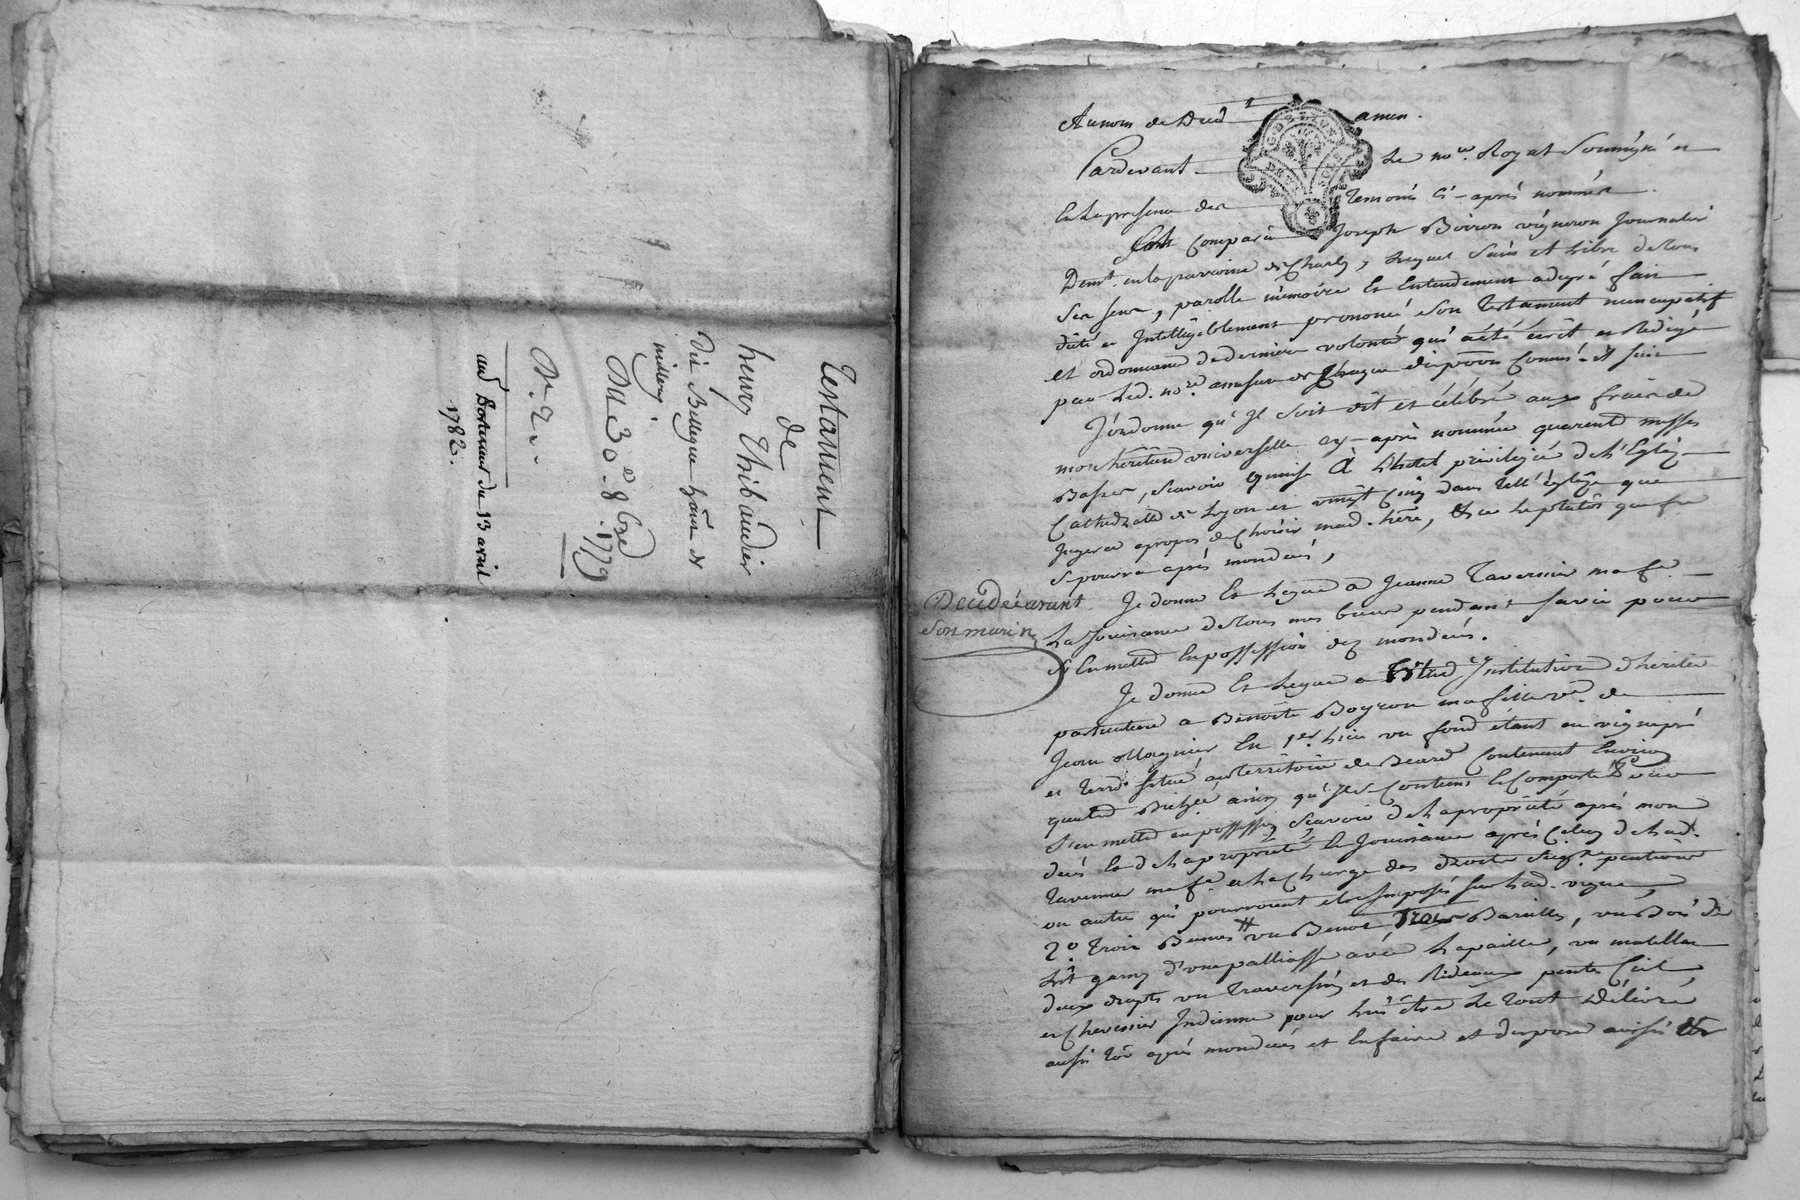 Testament
de
henry Thibaudier
Du 30e 8bre 1779
aud Porteur du 13 avril
1782.
Au nom de Dieu amen.
Pardevant Le nore. Royal Soussigné et
En la presence des temoins Ci-après nommés
fut Comparu Joseph Boiron vigneron Journalier
Demt. en la parroisse de Charly, Lequel Sain et Libre de tous
Ses sens, parolle mémoire Et Entendement a de gré fait
dicté et Intelligiblement prononcé Son testament nuncupatif
et ordonnance de derniere volonté qui a été écrit et Rédigé
par Led. nore. Comme il suit
J'ordonne qu'il Soit dit et célébré aux frais de
mon héritiere universelle cy-après nommée quarente messes
Basses, Scavoir quinze à L'hotel privilejié de L'Eglize
Cathedralle de Lyon et vingt Cinq dans telle églize que
Jugera apropos de Choisir mad. hére, Et ce Le plutôt que fe
Se pourra après mon décés,
Decedée avant
Son mari
Je donne Et Legue à Jeanne Tavernier ma fe.
La Jouissance de tous mes biens pendant Sa vie pour
S'en mettre En possession dez mon décés.
Je donne Et Legue a titre d'Institution d'héritiere
particuliere a Benoite Boyron ma fille ve. de
Jean Magnier En 1er. Lieu un fond étant en vigne pré
et terre Situé au territoire de Beard Contenant Environ
quatre Bichée ainsy qu'il Se Contient Et Comporte pour
S'en mettre en possession Scavoir de La propriété après mon
décés Et de La Jouissance après Celuy de Lad.
Tavernier ma fe. et La Charge des droits Seigrx pentions
ou autre qui pourroient etre Imposés Sur Lad. vigne,
2o. trois Bennes un Benot trois Barilles, un Bois de
Lit garny d'une palliasse avec La paille, un matellas
deux draps un traversin et des Rideaux pente Ciel
et Chevessier Indienne pour Lui être Le tout Délivré
aussi tôt après mon décés et En faire et disposer aussi tôt